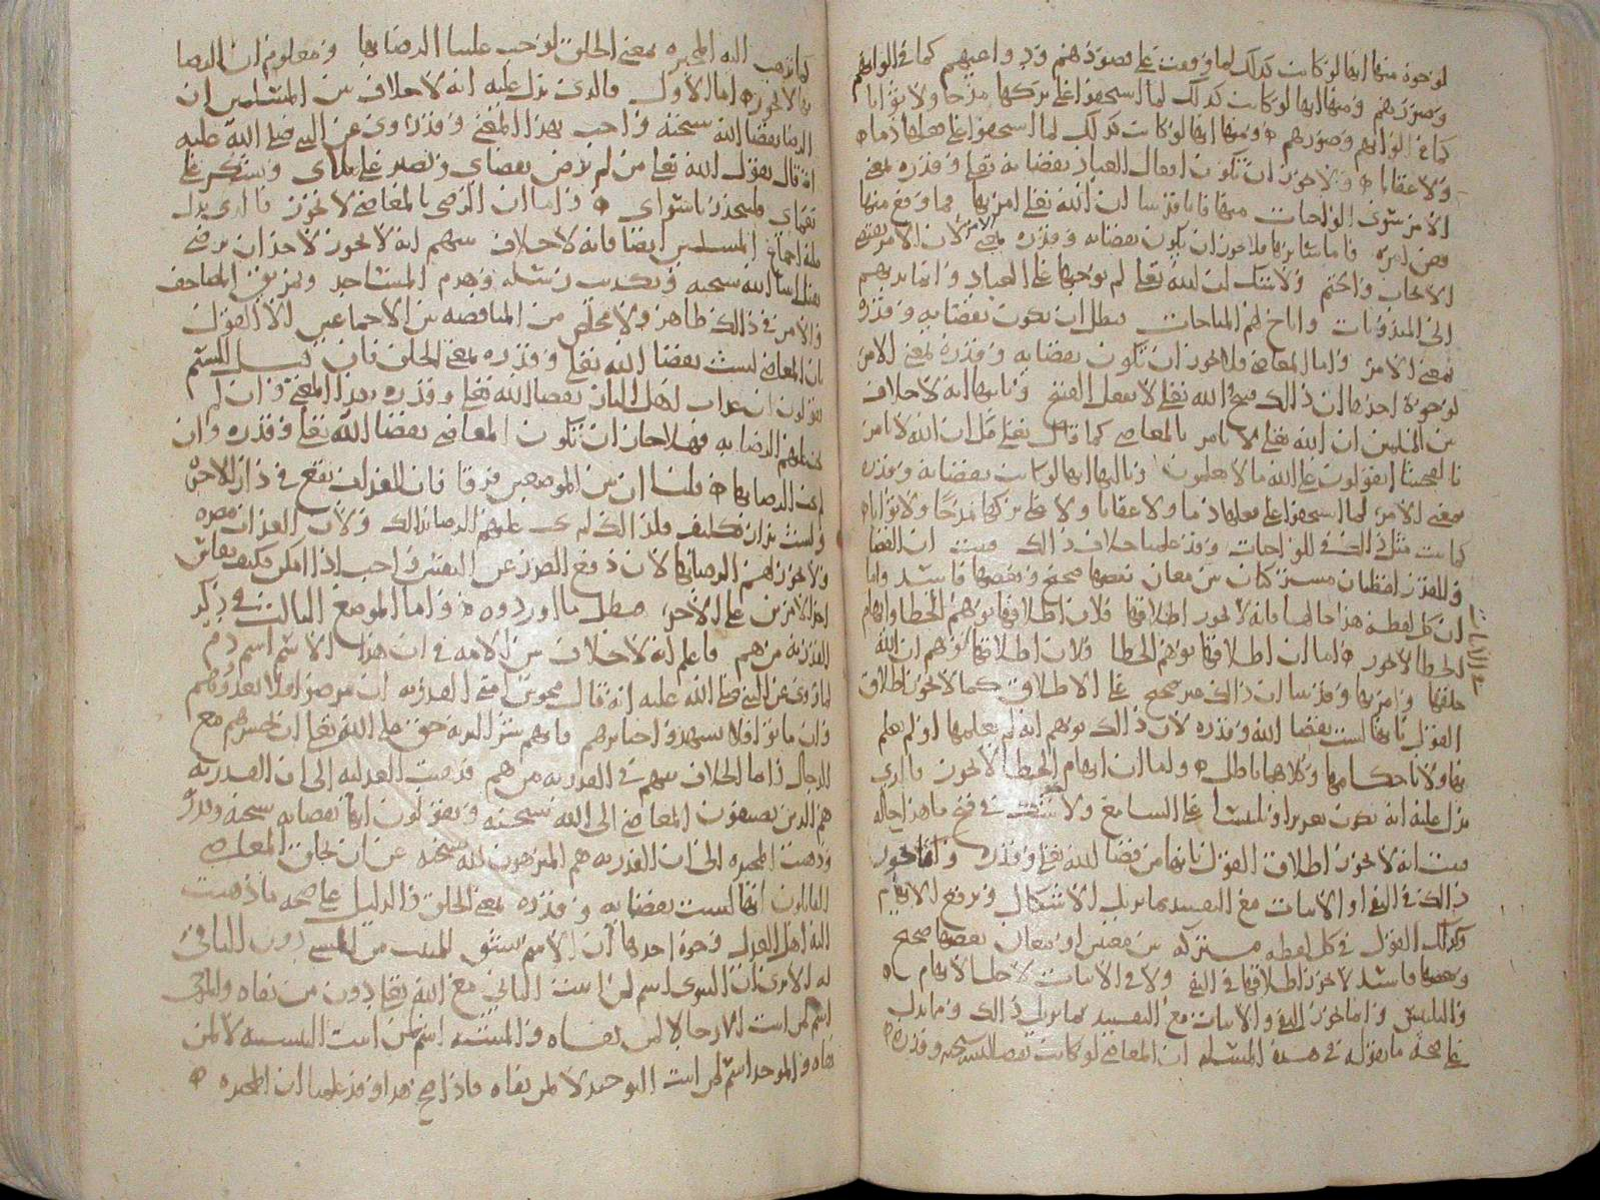 لوجوه منها انها لو كانت كذلك لما وقعت على قصودهم ودواعيهم كما في الوانهم
وصورهم ومنها انها لو كانت كذلك لما استحقوا على تركها مدحا ولا ثوابا
كما في الوانهم وصورهم ومنها انها لو كانت كذلك لما استحقوا على فعلها ذما
ولا عقابا ولا يجوز ان تكون افعال العباد بقضائه تعلى وقدره بمعنى
الامر سوى الواجبات منها فانا قد بينا ان الله تعلى امر بها فما وقع منها
فعن امره فاما سائرها فلا يجوز ان يكون بقضائه وقدره بمعنى الامر لان الامر يقتضي
الايجاب والحتم ولا شك ان الله تعلى لم يوجبها على العباد وانما ندبهم
الى المندوبات واباح لهم المباحات فبطل ان تكون بقضائه وقدره
بمعنى الامر واما المعاصي فلا يجوز ان تكون بقضائه وقدره بمعنى الامر
لوجوه احدها ان ذلك قبيح والله تعلى لا يفعل القبيح وثانيها انه لا خلاف
بين المسلمين ان الله تعلى لا يامر بالمعاصي كما قال تعلى قل ان الله لا يامر
بالفحشا اتقولون على الله ما لا تعلمون وثالثها انها لو كانت بقضائه وقدره
بمعنى الامر لما استحقوا على فعلها ذما ولا عقابا ولا على تركها مدحا ولا ثوابا
كما بينت مثل ذلك في الواجبات وقد علمنا خلاف ذلك فثبت ان القضا
والقدر لفظتان مشتركتان بين معان بعضها صحيح وبعضها فاسد واما
ان كل لفظة هذا حالها فانه لا يجوز اطلاقها فلان اطلاقها يوهم الخطا وايهام
الخطا لا يجوز اما ان اطلاقها يوهم الخطا فلان اطلاقها يوهم ان الله
خلقها وامر بها وقد بينا ان ذلك غير صحيح على الاطلاق كما لا يجوز اطلاق
القول بانها ليست بقضا الله وقدره لان ذلك يوهم انه لم يعلمها او لم يعلم
بها ولا باحكامها وكلاهما باطل واما ان ايهام الخطا لا يجوز فالذي
يدل عليه انه يكون تغريرا وتلبيسا على السامع ولا شك في قبح ما هذا حاله
فثبت انه لا يجوز اطلاق القول بانها من قضا الله تعلى وقدره وانما يجوز
ذلك في النفي او الاثبات مع التقييد بما يزيل الاشكال ويرفع الايهام
وكذلك القول في كل لفظه مشتركه بين معنيين او معان بعضها صحيح
وبعضها فاسد لا يجوز اطلاقها في النفي ولا في الاثبات لاجل الايهام
والتلبيس وانما يجوز النفي والاثبات مع التقييد بما يزيل ذلك ومما يدل
على صحة ما نقوله في هذه المسئلة ان المعاصي لو كانت بقضا الله سبحنه وقدره
كما تذهب اليه المجبرة بمعنى الخلق لوجب علينا الرضا بها ومعلوم ان الرضا
بها لا يجوز اما الاول فالذي يدل عليه انه لا خلاف بين المسلمين ان
الرضا بقضا الله سبحنه واجب بهذا المعنى وقد روي عن النبي صلى الله عليه
انه قال يقول الله تعلى من لم يرض بقضاي ويصبر على بلاي ويشكر على
نعماي فليتخذ ربا سواي واما ان الرضى بالمعاصي لا يجوز فالذي يدل
عليه اجماع المسلمين ايضا فانه لا خلاف بينهم انه لا يجوز لاحد ان يرضى
بقتل انبيا الله سبحنه وتكذيب رسله وهدم المساجد وتمزيق المصاحف
والامر في ذلك ظاهر ولا مخلص من المناقضه بين الاجماعين الا القول
بان المعاصي ليست بقضا الله تعلى وقدره بمعنى الخلق فان قيل الستم
تقولون ان عذاب اهل النار بقضا الله تعلى وقدره بهذا المعنى وان لم
يجب عليهم الرضا به فهلا جاز ان تكون المعاصي بقضا الله تعلى وقدره وان
لم يجب الرضا بها قلنا ان بين الموضعين فرقا فان العذاب يقع في دار الاخره
وليست بدار تكليف فلذلك لم يجب عليهم الرضا بذلك ولان العذاب مضره
ولا يجوز لهم الرضا بها لان دفع الضرر عن النفس واجب اذا امكن فكيف يقاس
احد الامرين على الاخر فبطل ما اوردوه واما الموضع الثالث في ذكر
القدرية من هم فاعلم انه لا خلاف بين الامة في ان هذا الاسم اسم ذم
لما روي عن النبي صلى الله عليه انه قال مجوس امتي القدرية ان مرضوا فلا تعودوهم
وان ماتوا فلا تشهدوا جنائزهم فانهم شر البرية حق على الله تعلى ان يحشرهم مع
الدجال واما الخلاف بينهم في القدرية من هم فذهبت العدلية الى ان القدرية
هم الذين يضيفون المعاصي الى الله سبحنه ويقولون انها بقضائه سبحنه وقدره
وذهبت المجبرة الى ان القدرية هم المنزهون لله سبحنه عن ان يخلق المعاصي
القائلون انها ليست بقضائه وقدره بمعنى الخلق والدليل على صحة ما ذهبت
اليه اهل العدل وجوه احدها ان الاسم يشتق للمثبت من الشي دون النافي
له الا ترى ان الثنوي اسم لمن اثبت الثاني مع الله تعلى دون من نفاه والمرجي
اسم لمن اثبت الارجا لا لمن نفاه والمشبه اسم لمن اثبت التشبيه لا لمن
نفاه والموحد اسم لمن اثبت التوحيد لا لمن نفاه فاذا صح هذا وقد علمنا ان المجبره